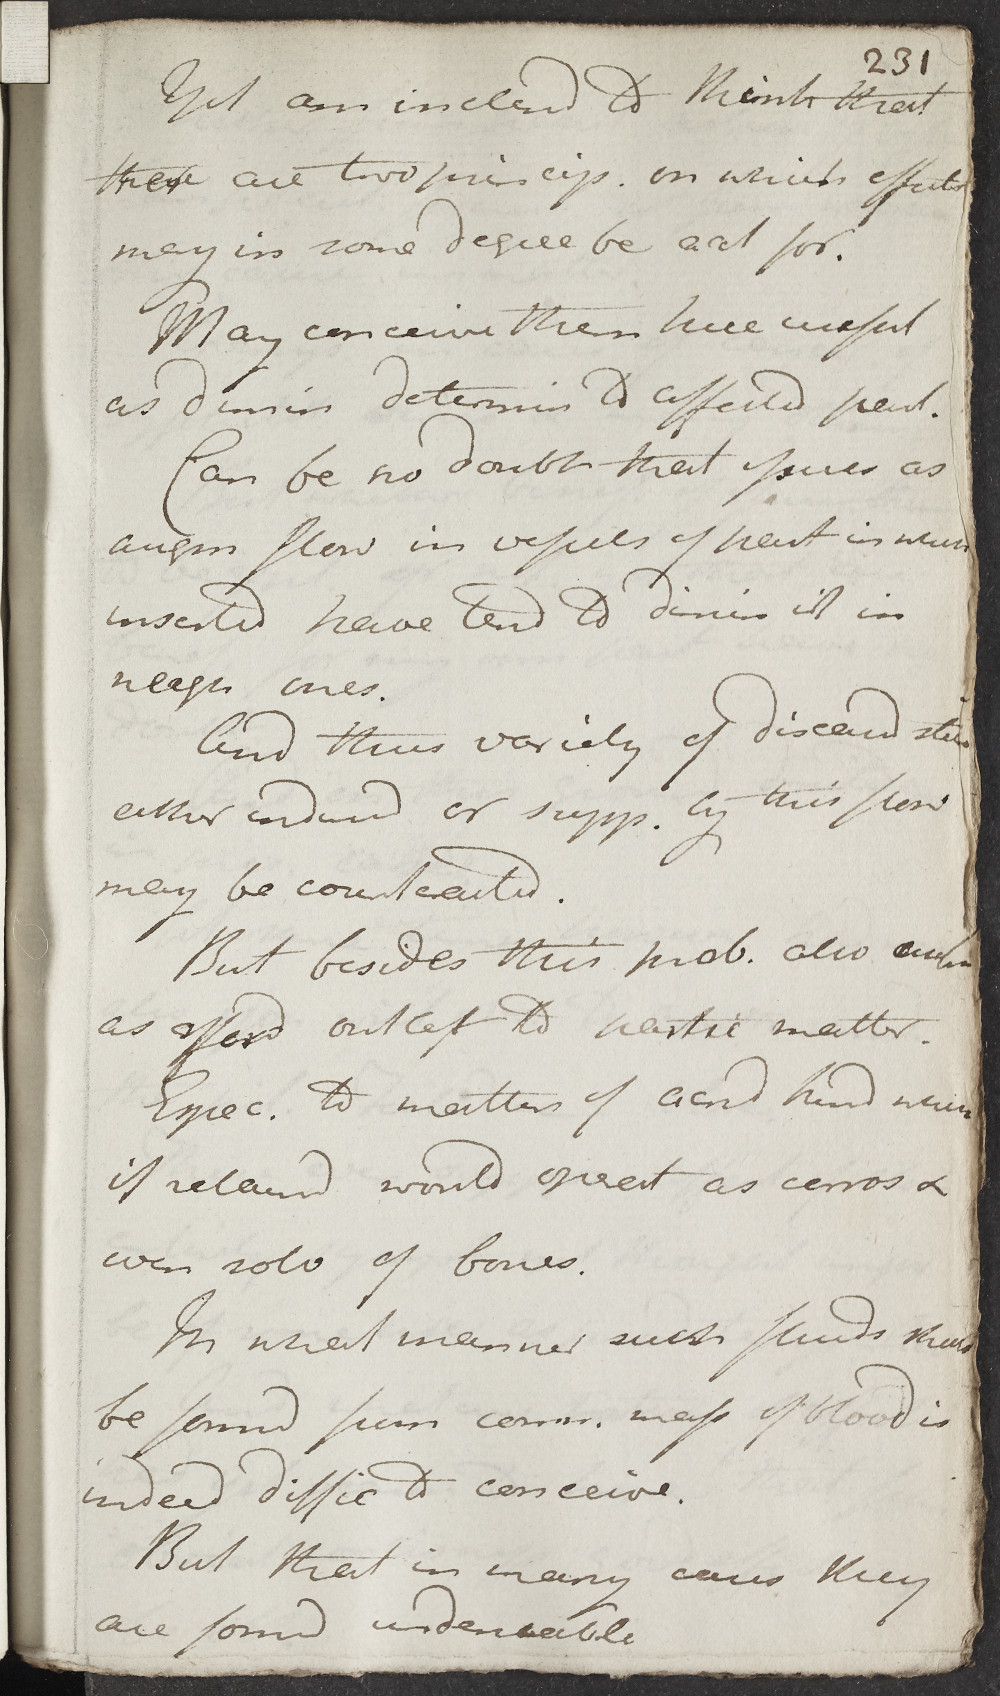 231
Yet am inclend to think that
there are two princip. on which effects
may in some degree be act for.
May conceive them here usefull
as dimin determin to affected part.
Can be no doubt that issues as
augm flow in vessels of part in which
inserted have tend to dimin it in
neigh ones.
And thus variety of diseasd
either inducd or supp. by this flow
may be counteracted.
But besides this prob. also
as afford outlet to partic matter.
Espec. to matters of acrid kind which
if retaind would operat as corros &
even solv of bones.
In what manner such fluids should
be formd from comm. mass of blood is
indeed diffic to conceive.
But that in many cases they
are formd undeniable